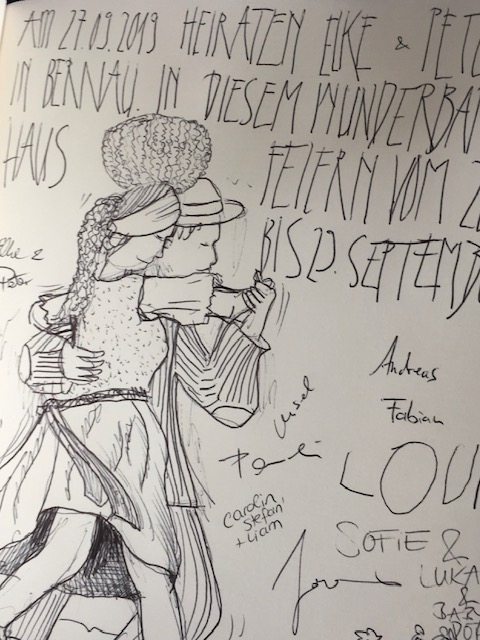 AM 27.09.2019 HEIRATEN ELKE & PETE
IN BERNAU. IN DIESEM WUNDERBA
HAUS
FEIERN VOM 2
BIS 29. SEPTEMB
Elke &
Peter
Andreas
Fabian
Ursel
LOUI
Carolin
Stefan,
+ Liam
SOFIE &
LUKA
&
BAR